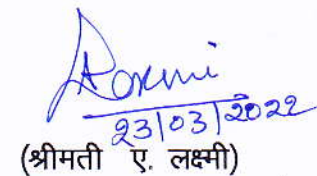 23/03/2022
(श्रीमती ए. लक्ष्मी)